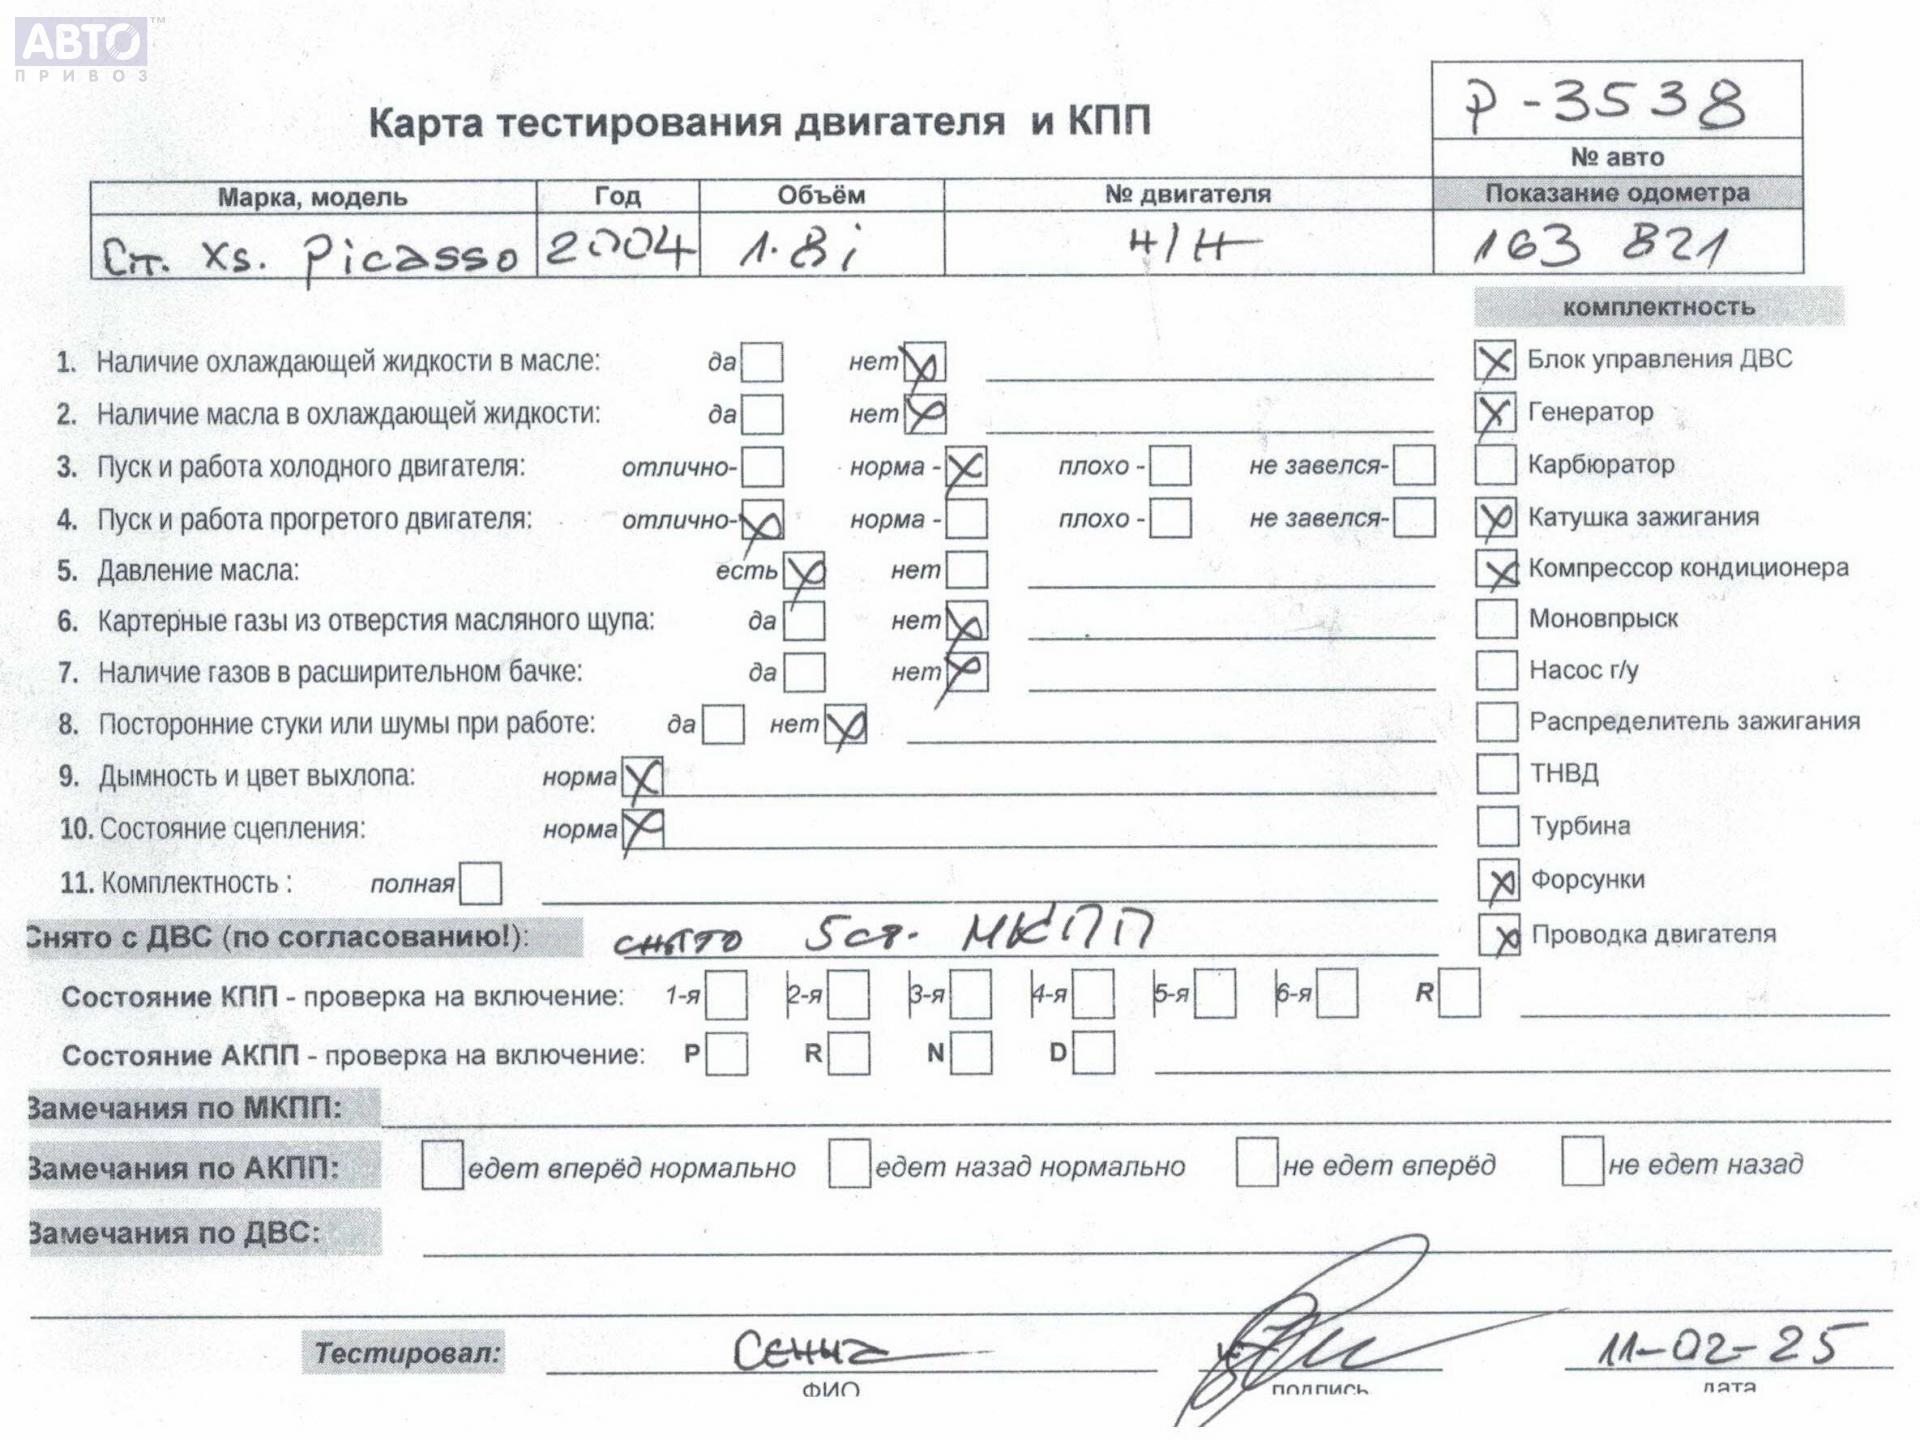 АВТО™
ПРИВОЗ
P-3538
Карта тестирования двигателя и КПП
№ авто
Марка, модель Год Объём № двигателя Показание одометра
Cit. Xs. Picasso 2004 1.8i Ч/Н 163 821
комплектность
1. Наличие охлаждающей жидкости в масле: да нет Блок управления ДВС
2. Наличие масла в охлаждающей жидкости: да нет Генератор
3. Пуск и работа холодного двигателя: отлично- норма - плохо - не завелся- Карбюратор
4. Пуск и работа прогретого двигателя: отлично- норма - плохо - не завелся- Катушка зажигания
5. Давление масла: есть нет Компрессор кондиционера
6. Картерные газы из отверстия масляного щупа: да нет Моновпрыск
7. Наличие газов в расширительном бачке: да нет Насос г/у
8. Посторонние стуки или шумы при работе: да нет Распределитель зажигания
9. Дымность и цвет выхлопа: норма ТНВД
10. Состояние сцепления: норма Турбина
11. Комплектность : полная Форсунки
Снято с ДВС (по согласованию!): снято 5ст. МКПП Проводка двигателя
Состояние КПП - проверка на включение: 1-я 2-я 3-я 4-я 5-я 6-я R
Состояние АКПП - проверка на включение: P R N D
Замечания по МКПП:
Замечания по АКПП: едет вперёд нормально едет назад нормально не едет вперёд не едет назад
Замечания по ДВС:
Тестировал: 11-02-25
ФИО подпись дата